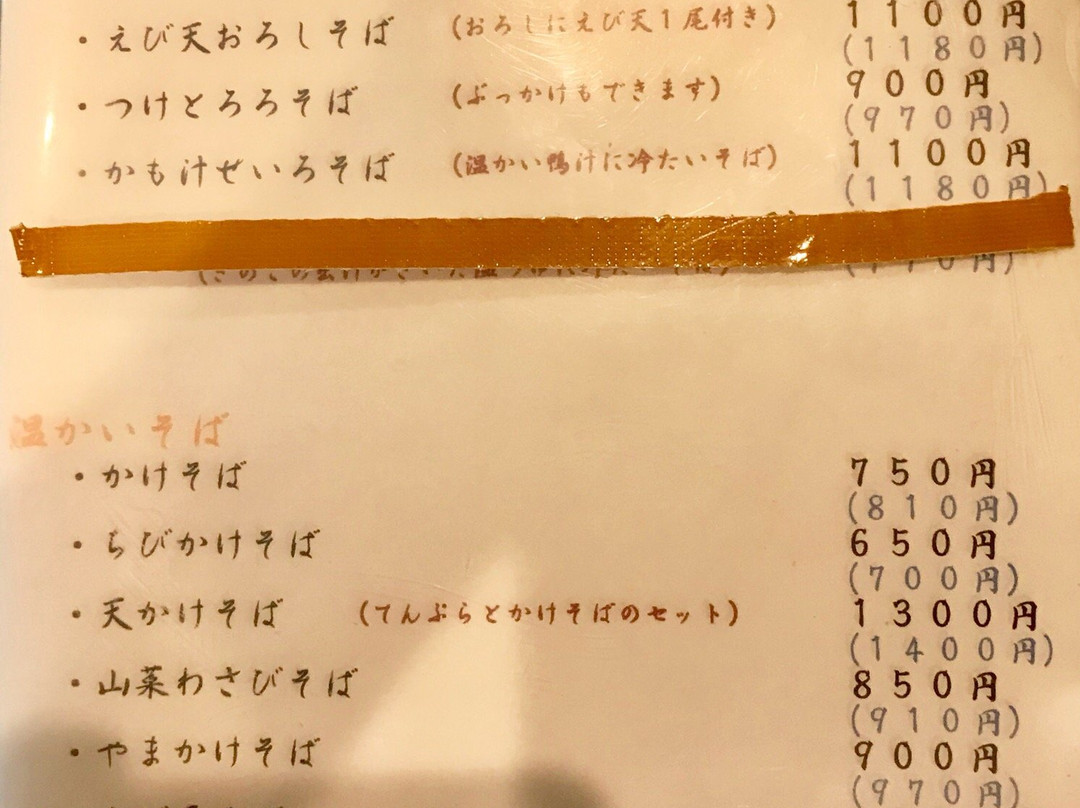 ・えび天おろしそば (おろしにえび天1尾付き) 1100円
(1180円)
・つけとろろそば (ぶっかけもできます) 900円
(970円)
・かも汁せいろそば (温かい鴨汁に冷たいそば) 1100円
(1180円)
温かいそば
・かけそば 750円
(810円)
・ちびかけそば 650円
(700円)
・天かけそば (てんぷらとかけそばのセット) 1300円
(1400円)
・山菜わさびそば 850円
(910円)
・やまかけそば 900円
(970円)